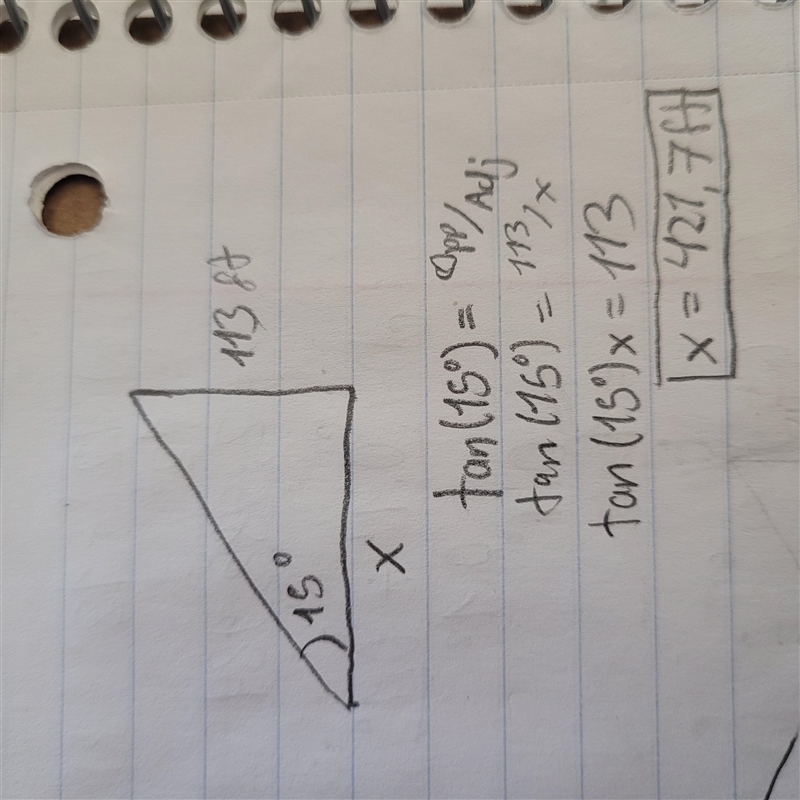 113 ft
15°
x
tan(15°) = Opp/Adj
tan(15°) = 113/x
tan(15°)x = 113
x = 421,7ft